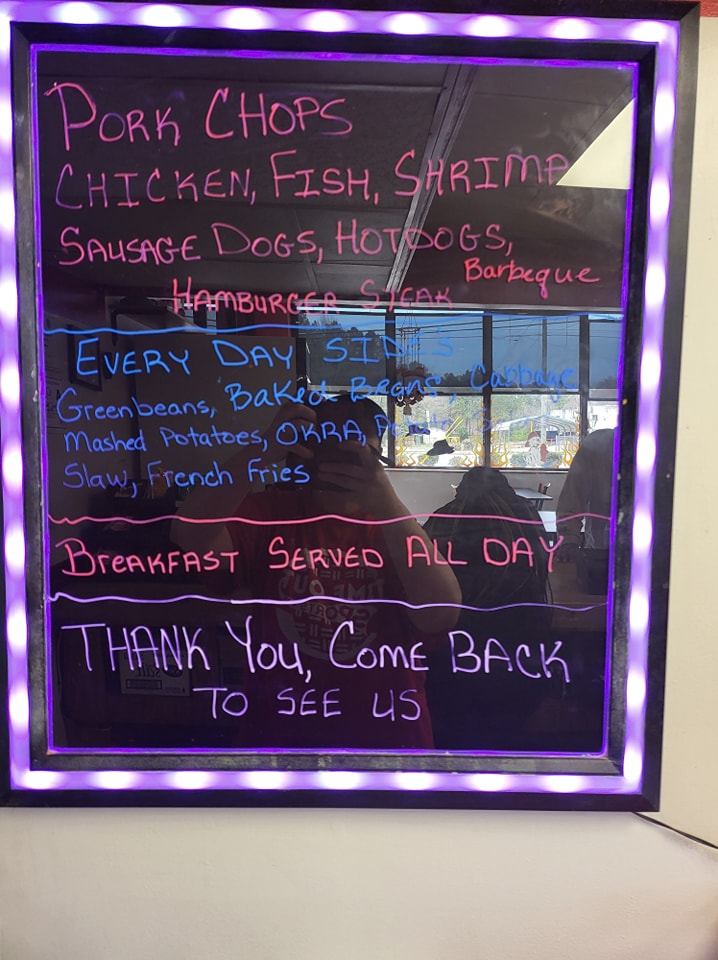 PORK CHOPS
CHICKEN, FISH, SHRIMP
SAUSAGE DOGS, HOTDOGS,
Barbeque
HAMBURGER STEAK
EVERY DAY SIDES
Greenbeans, Baked Beans, Cabbage
Mashed Potatoes, OKRA, Potato
Slaw, French Fries
BREAKFAST SERVED ALL DAY
THANK YOU, COME BACK
TO SEE US